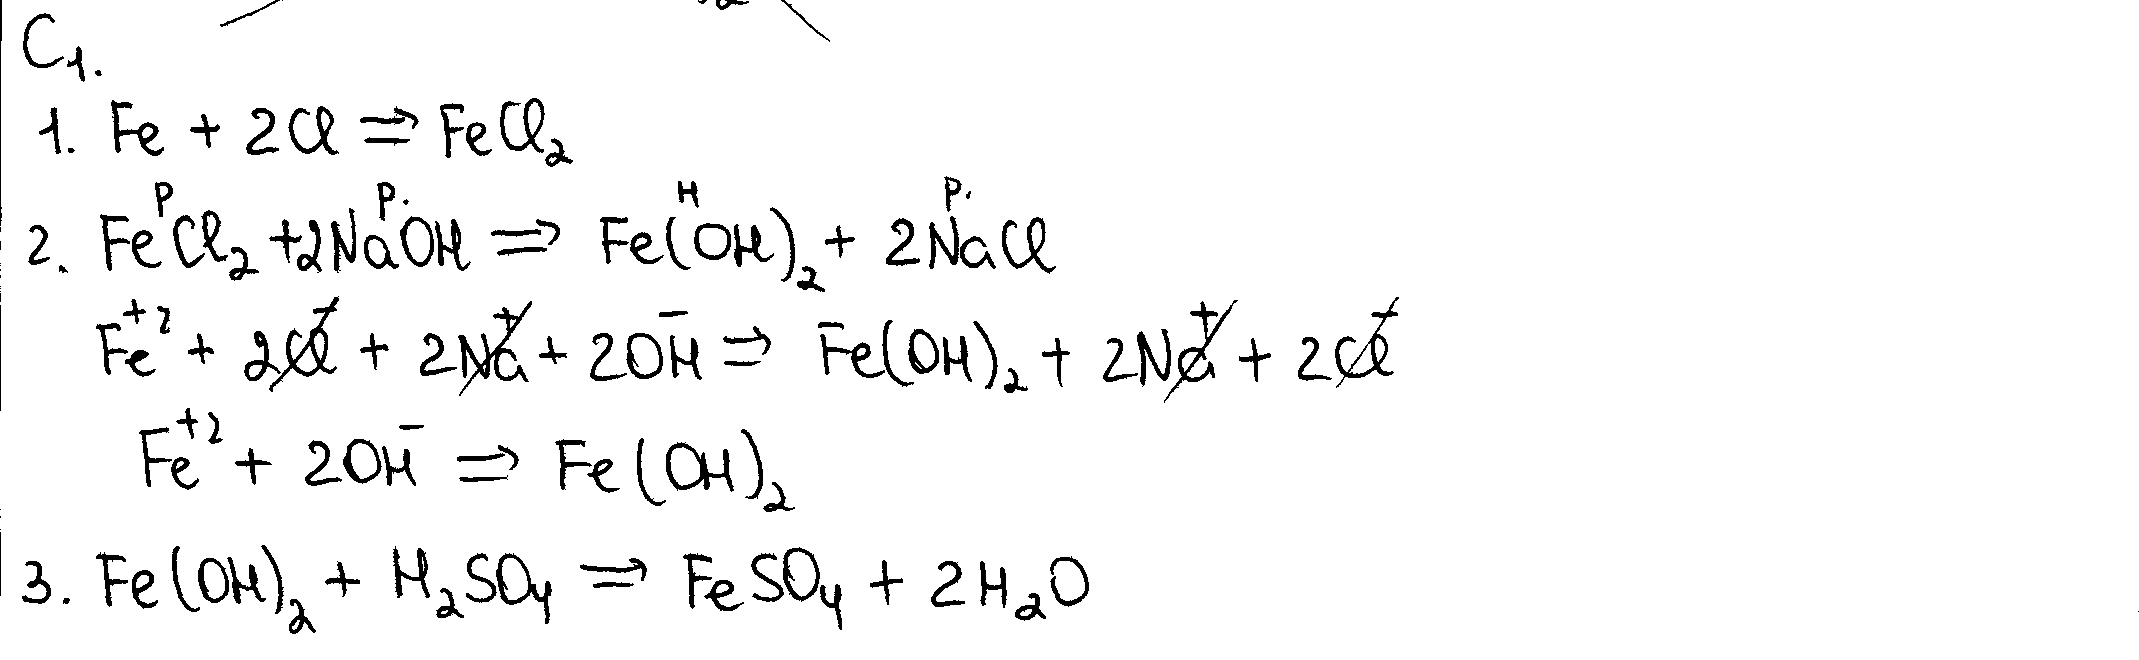 C₁.
1. Fe + 2Cl ⇒ FeCl₂
р р. н р.
2. FeCl₂ + 2NaOH ⇒ Fe(OH)₂ + 2NaCl
Fe⁺² + 2Cl⁻ + 2Na⁺ + 2OH⁻ ⇒ Fe(OH)₂ + 2Na⁺ + 2Cl⁻
Fe⁺² + 2OH⁻ ⇒ Fe(OH)₂
3. Fe(OH)₂ + H₂SO₄ ⇒ FeSO₄ + 2H₂O